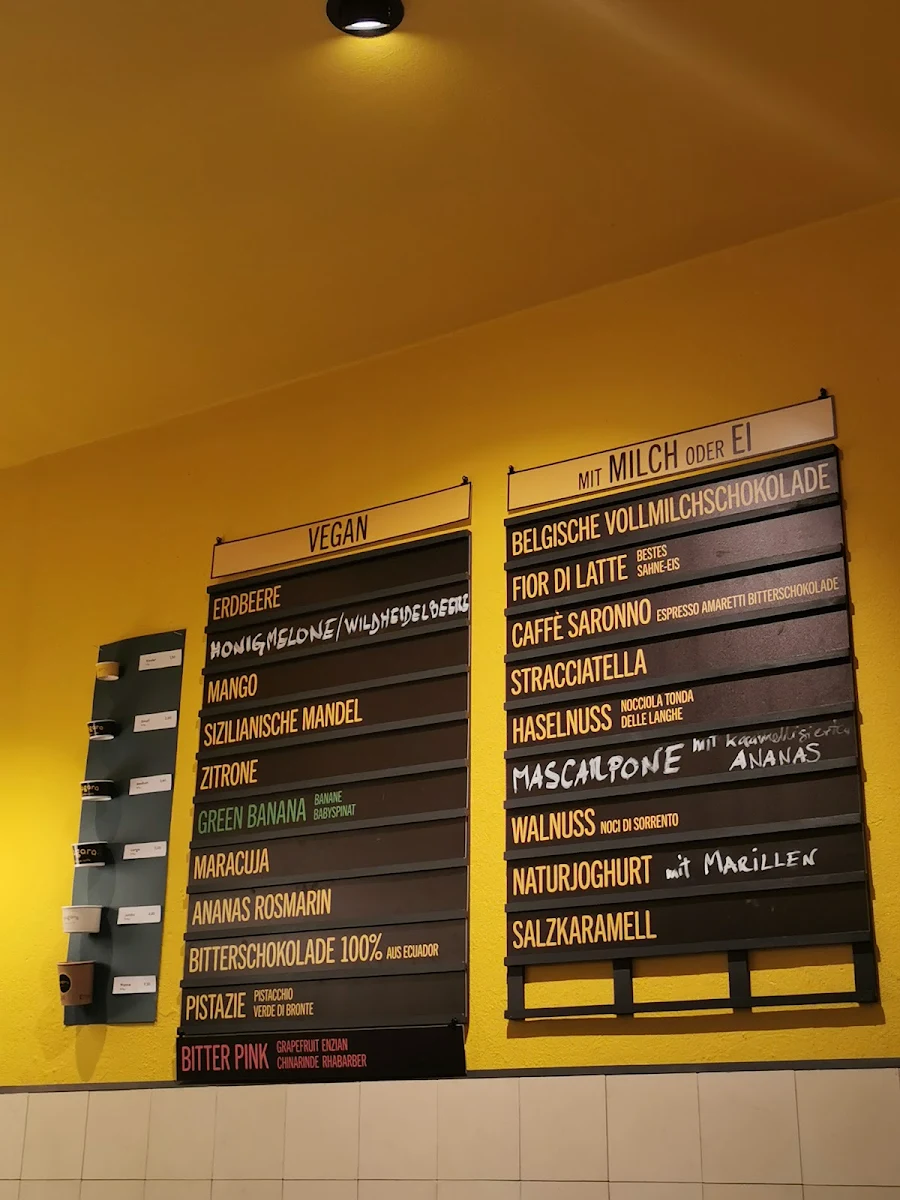 VEGAN
ERDBEERE
HONIGMELONE/WILDHEIDELBEERE
MANGO
SIZILIANISCHE MANDEL
ZITRONE
GREEN BANANA BANANE
BABYSPINAT
MARACUJA
ANANAS ROSMARIN
BITTERSCHOKOLADE 100% AUS ECUADOR
PISTAZIE PISTACCHIO
VERDE DI BRONTE
BITTER PINK GRAPEFRUIT ENZIAN
CHINARINDE RHABARBER
MIT MILCH ODER EI
BELGISCHE VOLLMILCHSCHOKOLADE
FIOR DI LATTE BESTES
SAHNE-EIS
CAFFÈ SARONNO ESPRESSO AMARETTI BITTERSCHOKOLADE
STRACCIATELLA
HASELNUSS NOCCIOLA TONDA
DELLE LANGHE
MASCARPONE mit karamellisierter
ANANAS
WALNUSS NOCI DI SORRENTO
NATURJOGHURT mit MARILLEN
SALZKARAMELL